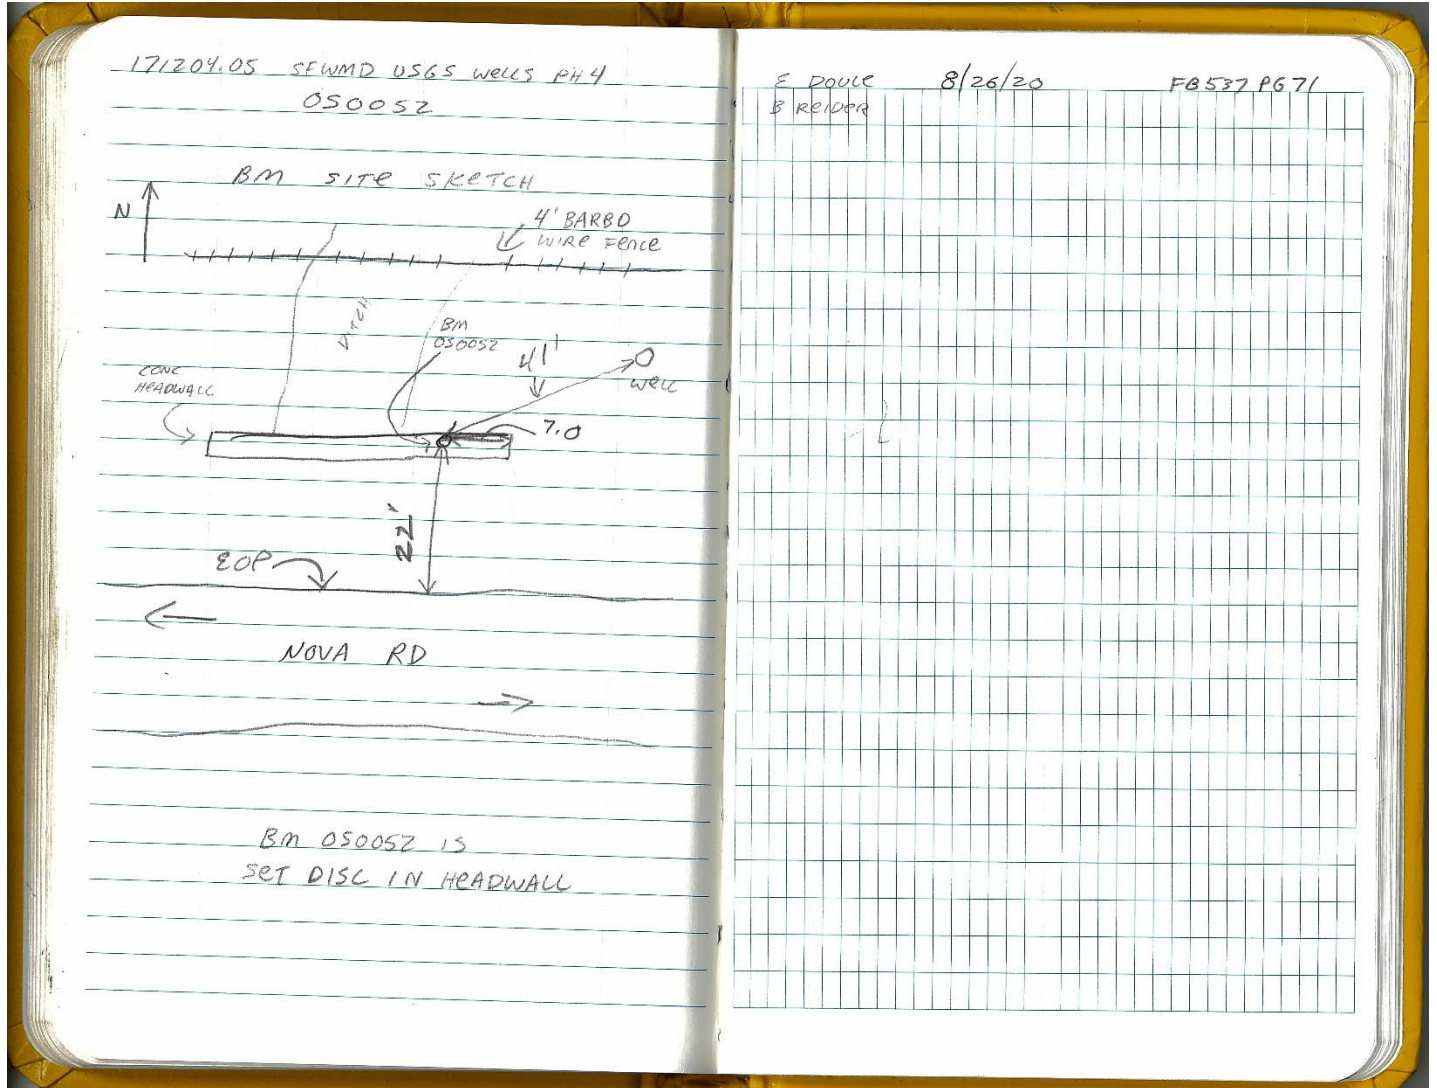 171204.05 SFWMD USGS WELLS PH4
OS0052
BM SITE SKETCH
N
4' BARBD
WIRE FENCE
DITCH
BM
OS0052
41'
WELL
CONC
HEADWALL
7.0
22'
EOP
NOVA RD
BM OS0052 IS
SET DISC IN HEADWALL
E DOULE 8/26/20 FB537 PG71
B REIDER